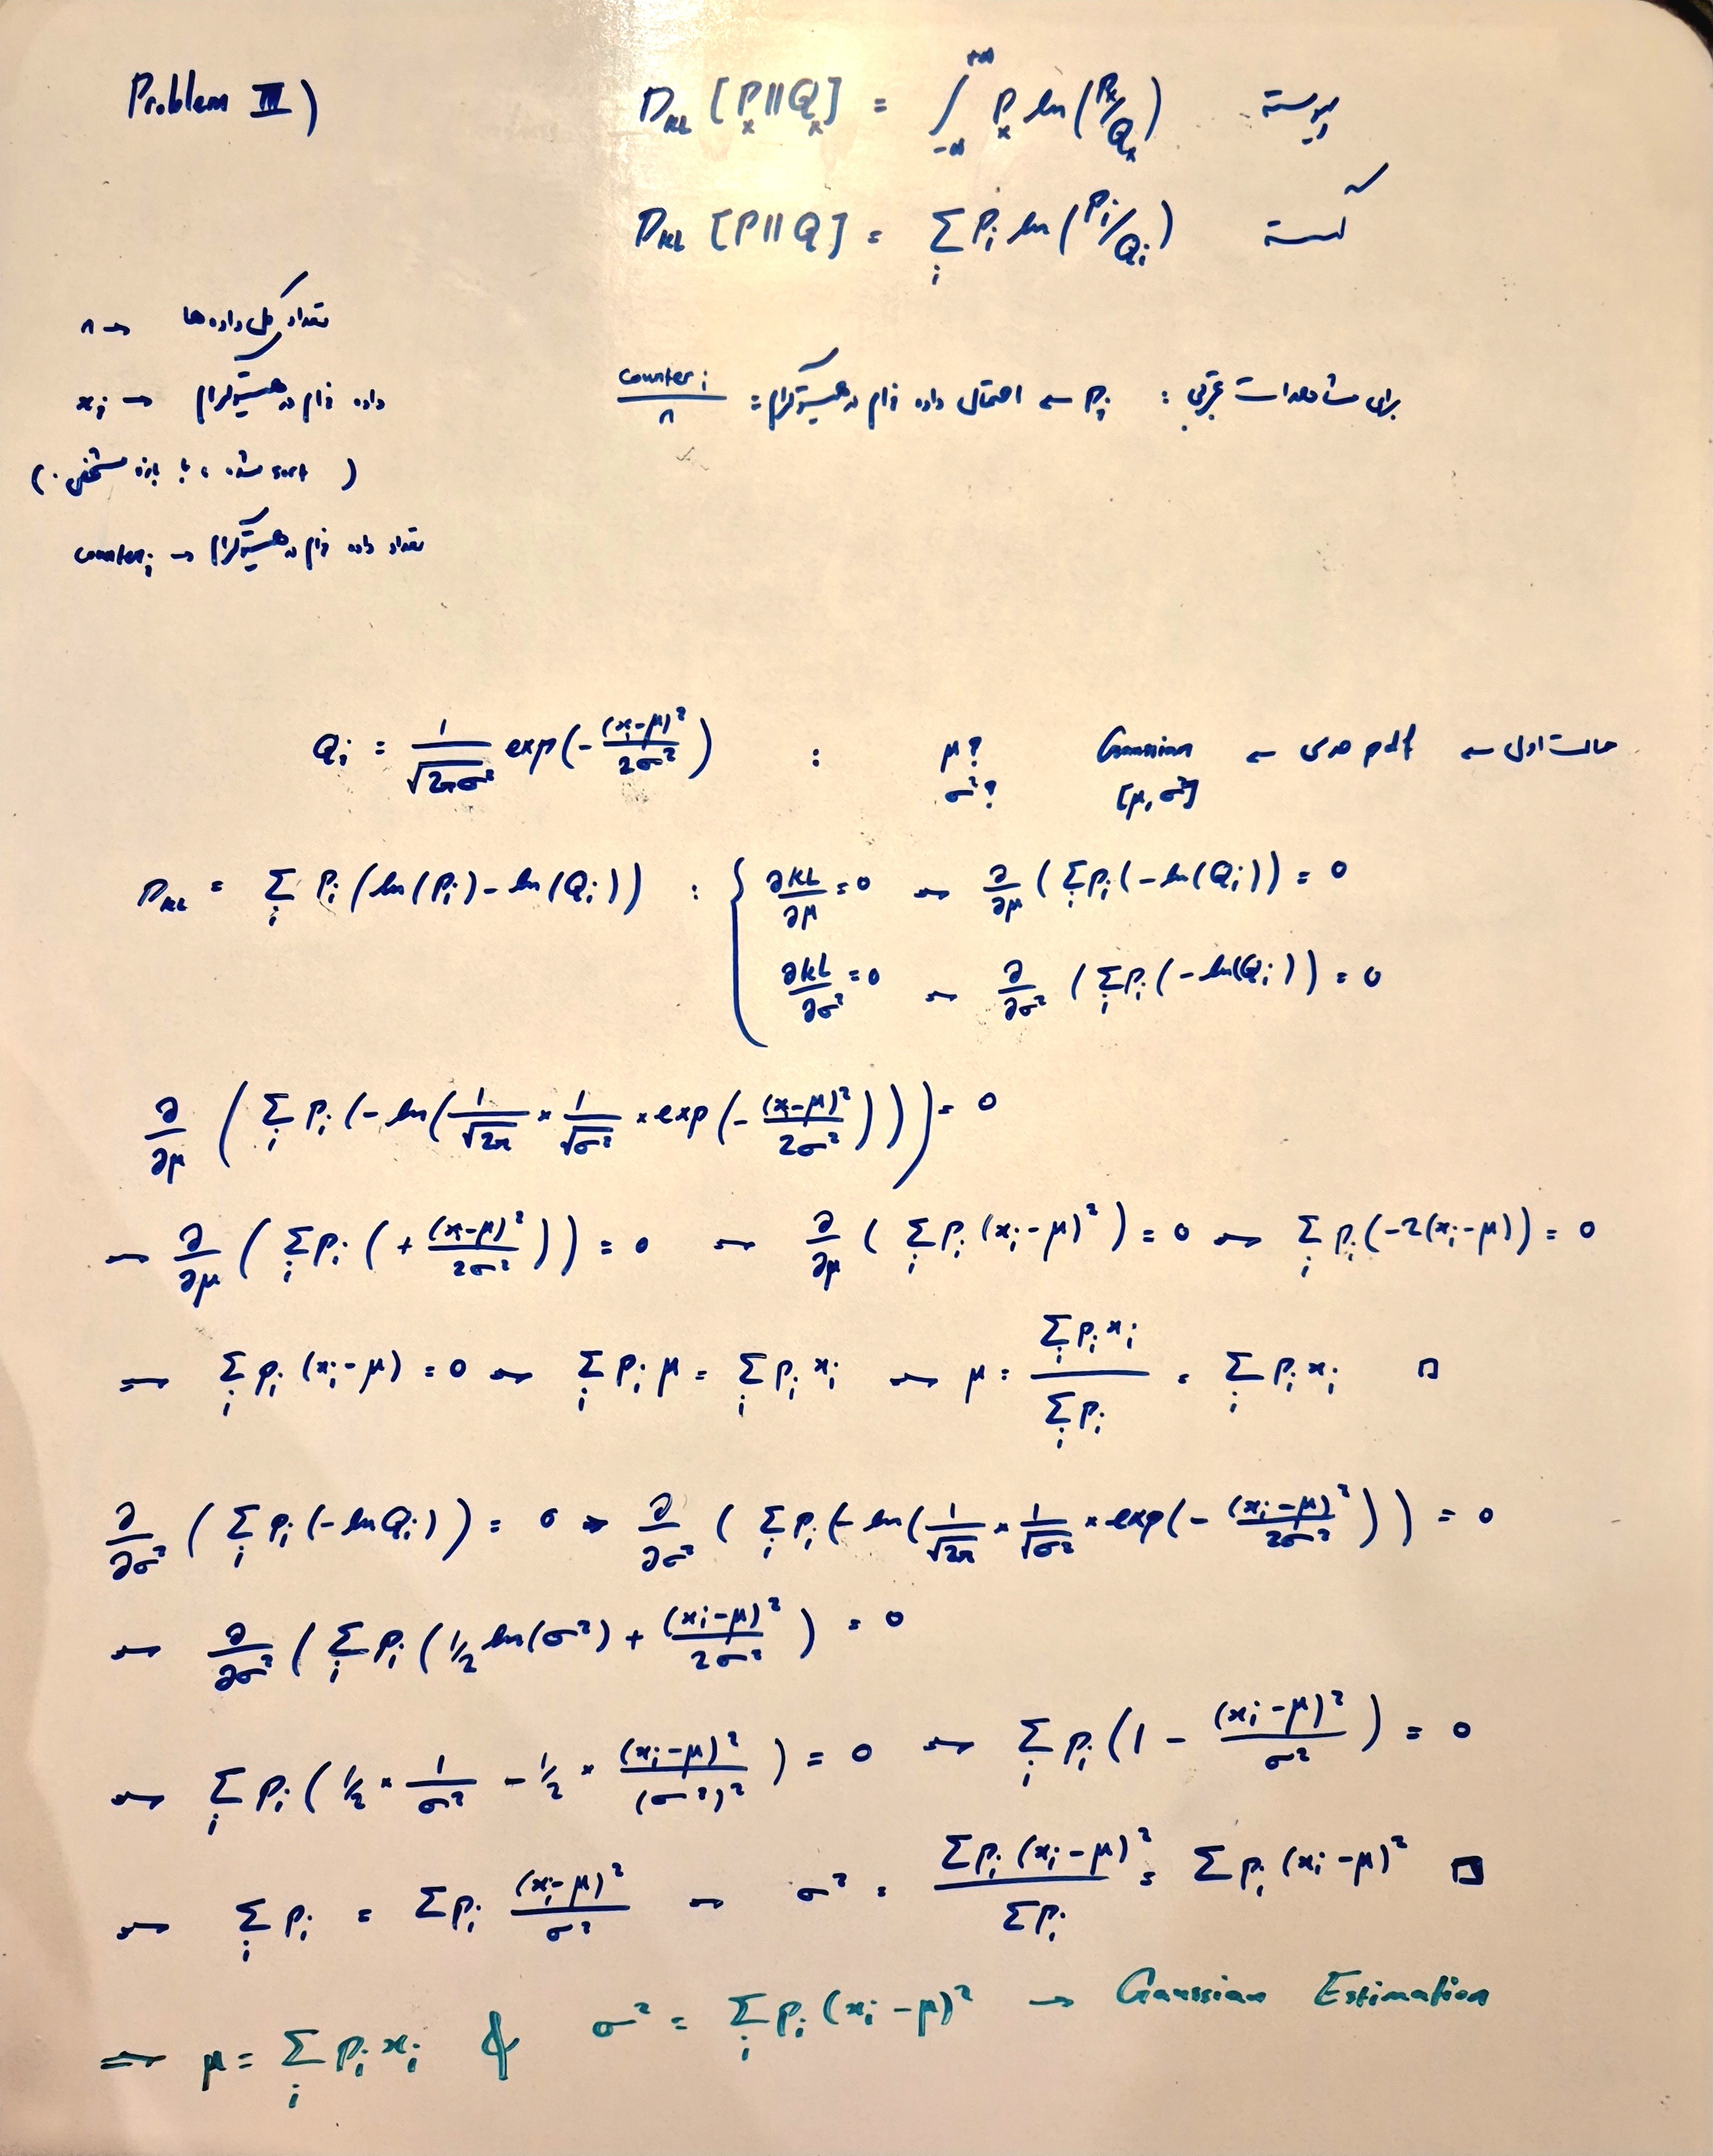 Problem III)
D_KL [P_x || Q_x] = ∫_{-∞}^{+∞} P_x ln(P_x/Q_x) پیوسته
D_KL [P || Q] = Σ_i P_i ln(P_i/Q_i) گسسته
n → تعداد کل داده ها
x_i → داده iام در هیستوگرام
( sort شده ، با بازه مشخص .)
counter_i → تعداد داده iام در هیستوگرام
برای مشاهدات تجربی : P_i → احتمال داده iام در هیستوگرام = counter_i / n
حالت اول → pdf حدسی → Gaussian [μ, σ²] μ? σ²? : Q_i = 1/√(2πσ²) exp(-(x_i-μ)²/2σ²)
D_KL = Σ_i P_i (ln(P_i) - ln(Q_i)) : { ∂KL/∂μ = 0 → ∂/∂μ (Σ_i P_i(-ln(Q_i)) = 0
∂KL/∂σ² = 0 → ∂/∂σ² (Σ_i P_i(-ln(Q_i)) = 0
∂/∂μ (Σ_i P_i (-ln(1/√2π × 1/√σ² × exp(-(x_i-μ)²/2σ²)))) = 0
→ ∂/∂μ (Σ_i P_i (+(x_i-μ)²/2σ²)) = 0 → ∂/∂μ (Σ_i P_i (x_i-μ)²) = 0 → Σ_i P_i(-2(x_i-μ)) = 0
→ Σ_i P_i (x_i-μ) = 0 → Σ_i P_i μ = Σ_i P_i x_i → μ = Σ_i P_i x_i / Σ_i P_i = Σ_i P_i x_i □
∂/∂σ² (Σ_i P_i(-ln Q_i)) = 0 → ∂/∂σ² (Σ_i P_i(-ln(1/√2π × 1/√σ² × exp(-(x_i-μ)²/2σ²))) = 0
→ ∂/∂σ² (Σ_i P_i (1/2 ln(σ²) + (x_i-μ)²/2σ²) = 0
→ Σ_i P_i (1/2 × 1/σ² - 1/2 × (x_i-μ)²/(σ²)²) = 0 → Σ_i P_i (1 - (x_i-μ)²/σ²) = 0
→ Σ_i P_i = Σ P_i (x_i-μ)²/σ² → σ² = Σ P_i (x_i-μ)² / Σ P_i = Σ P_i (x_i-μ)² □
⇒ μ = Σ_i P_i x_i & σ² = Σ_i P_i (x_i-μ)² → Gaussian Estimation